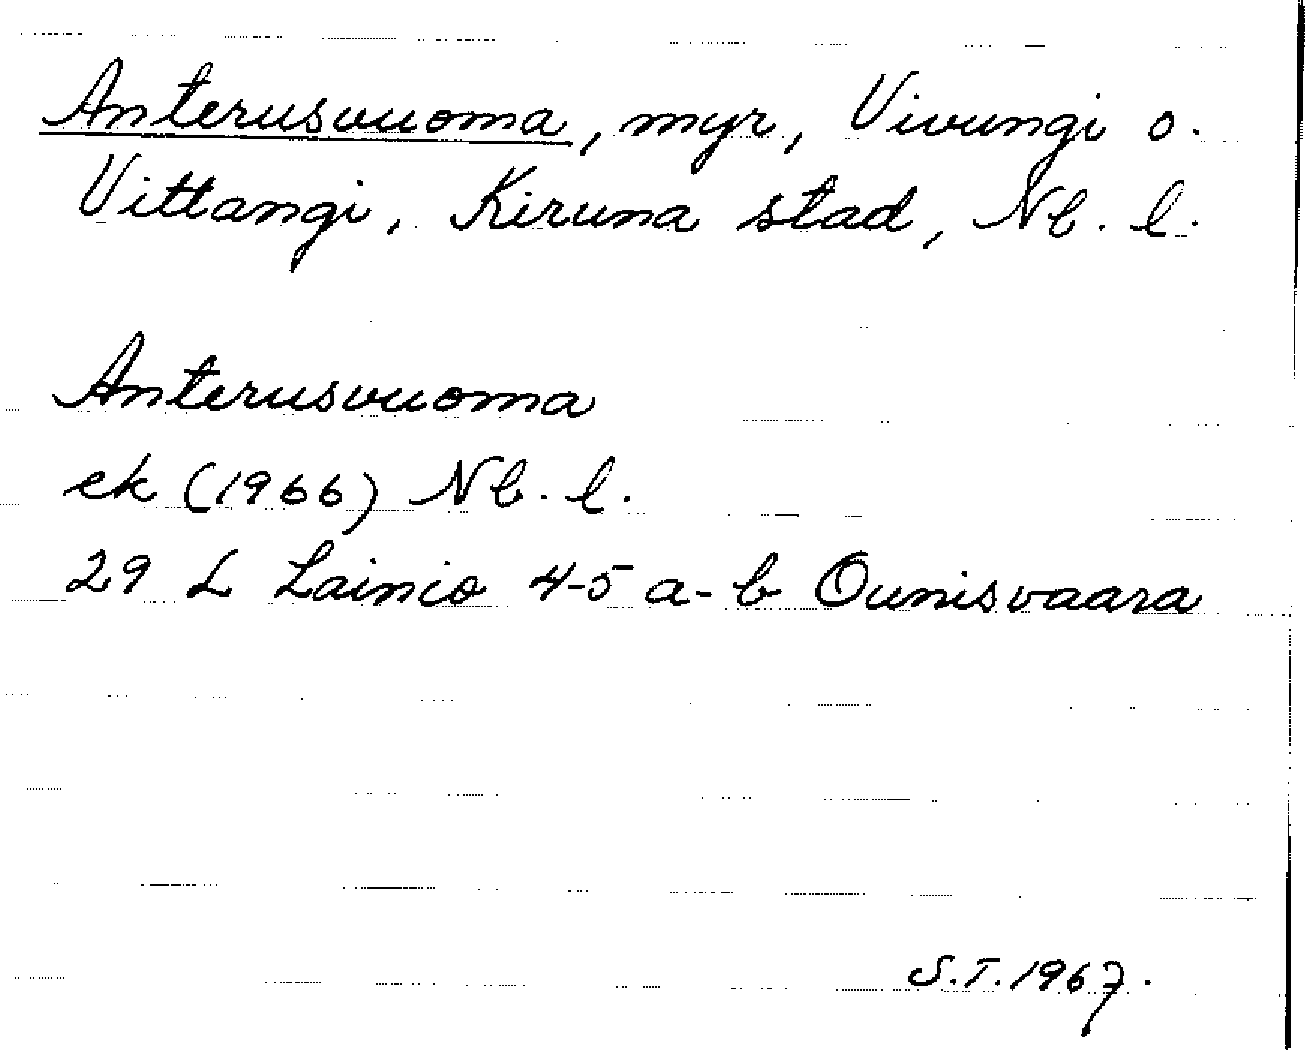 Anterusvuoma, myr, Vivungi o.
Vittangi, Kiruna stad, Nb. l.
Anterusvuoma
ek (1966) Nb. l.
29 L Lainio 4-5 a-b Ounisvaara
S.T. 1967.